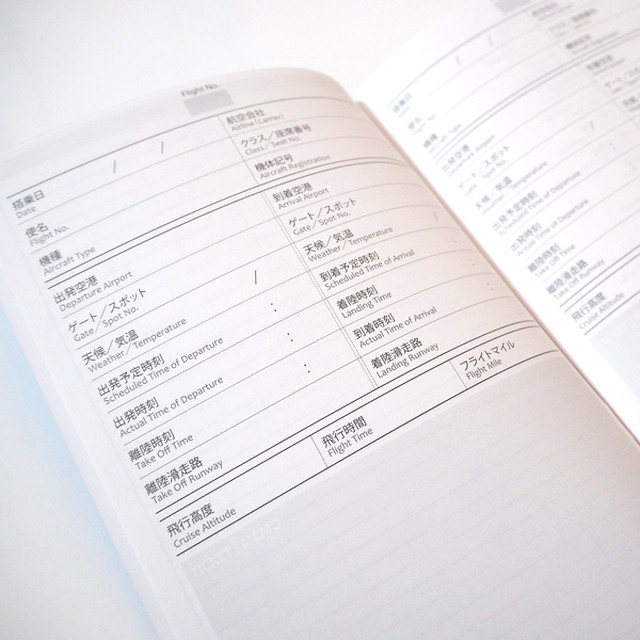 Flight No.
搭乗日
Date
/ /
航空会社
Airline(Carrier)
便名
Flight No.
クラス/座席番号
Class/Seat No.
機種
Aircraft Type
機体記号
Aircraft Registration
出発空港
Departure Airport
到着空港
Arrival Airport
ゲート/スポット
Gate/Spot No.
ゲート/スポット
Gate/Spot No.
天候/気温
Weather/Temperature
/
天候/気温
Weather/Temperature
/
出発予定時刻
Scheduled Time of Departure
:
到着予定時刻
Scheduled Time of Arrival
:
出発時刻
Actual Time of Departure
:
着陸時刻
Landing Time
:
離陸時刻
Take Off Time
:
到着時刻
Actual Time of Arrival
:
離陸滑走路
Take Off Runway
着陸滑走路
Landing Runway
飛行高度
Cruise Altitude
飛行時間
Flight Time
フライトマイル
Flight Mile
搭乗日
Date
/ /
便名
Flight No.
機種
Aircraft Type
出発空港
Departure Airport
ゲート/スポット
Gate/Spot No.
天候/気温
Weather/Temperature
/
出発予定時刻
Scheduled Time of Departure
出発時刻
Actual Time of Departure
離陸時刻
Take Off Time
離陸滑走路
Take Off Runway
飛行高度
Cruise Altitude